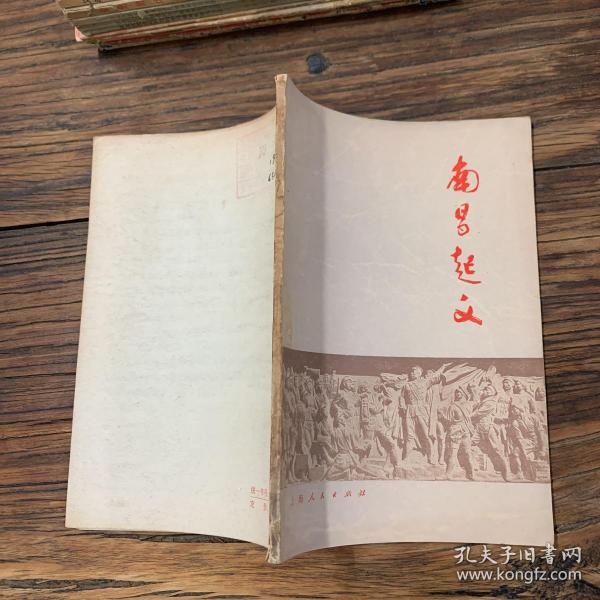 南昌起义
上海人民出版社
统一书号
定
孔夫子旧书网
www.kongfz.com